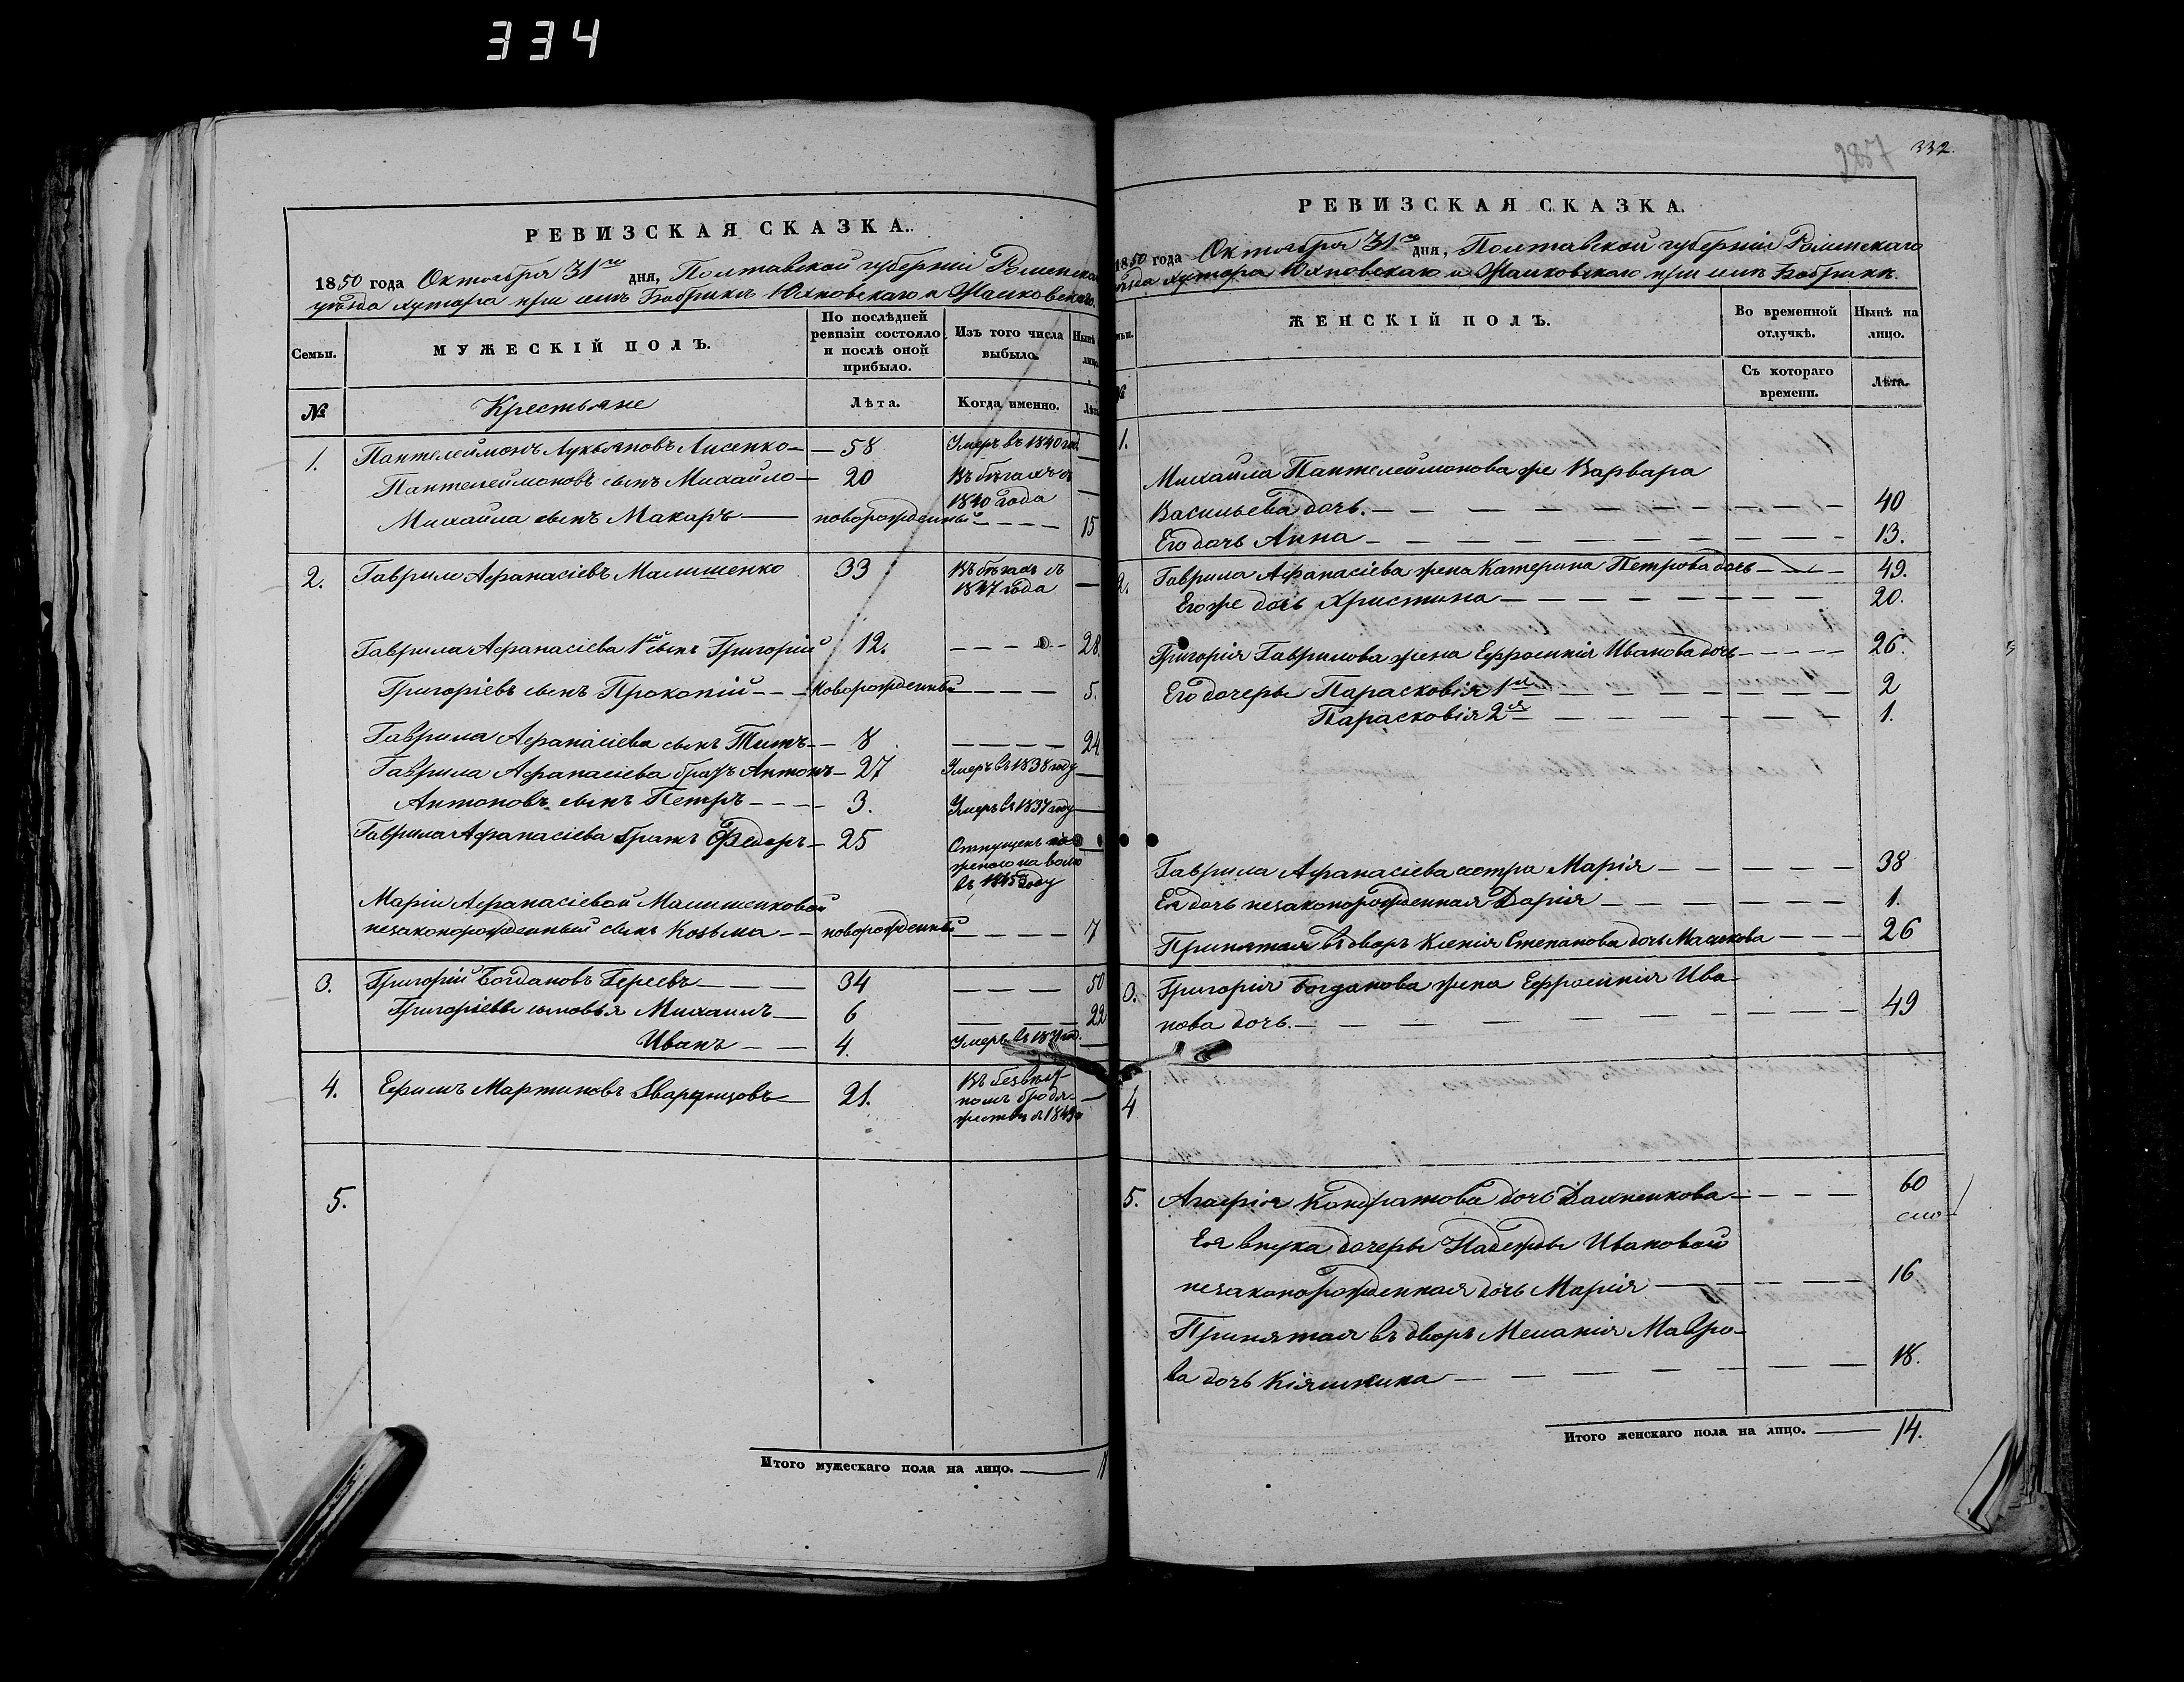 334
РЕВИЗСКАЯ СКАЗКА.
1850 года Октября 31го дня, Полтавской губерніи Роменскаго
уѣзда хутора при селѣ Бобрикѣ Юхновскаго и
Семьи.
МУЖЕСКІЙ ПОЛЪ.
По послѣдней ревизіи состояло и послѣ оной прибыло.
Изъ того числа выбыло.
Нынѣ лицо
№
Крестьяне
Лѣта.
Когда именно.
Лѣта
1. Пантелеймонъ Лукьяновъ Лисенко — 58 Умеръ въ 1840 год.
Пантелеймоновъ сынъ Михайло — 20 Въ бѣгахъ съ
1840 года
Михайла сынъ Макаръ — новорожденный 15
2. Гаврило Афанасіевъ Малишенко 33 Въ бѣгахъ съ
1847 года
Гаврила Афанасіева 1й сынъ Григорій 12. 28.
Григоріевъ сынъ Прокопій — Новорожденный 5.
Гаврила Афанасіева сынъ Титъ — 8 24
Гаврила Афанасіева братъ Антонъ — 27 Умеръ въ 1838 году
Антоновъ сынъ Петръ — 3. Умеръ въ 1837 году
Гаврила Афанасіева братъ Федоръ — 25 Отпущенъ
на волю
въ 1845 году
Маріи Афанасіевой Малишенковой
незаконорожденный сынъ Козьма — новорожденный 7
3. Григорій Богдановъ Гереевъ — 34 50
Григоріевы сыновья Михаилъ — 6 22
Иванъ — 4. Умеръ въ
4. Ефимъ Мартиновъ 21. Въ безвѣст
номъ бродя-
жествѣ с 1849
5.
Итого мужескаго пола на лицо.
2857 332.
РЕВИЗСКАЯ СКАЗКА.
1850 года Октября 31го дня, Полтавской губерніи Роменскаго
уѣзда хутора Юхновскаго и при селѣ Бобрикѣ.
ЖЕНСКІЙ ПОЛЪ.
Во временной отлучкѣ.
Нынѣ на лицо.
Съ котораго времени.
Лѣта.
1.
Михайла Пантелеймонова же Варвара
Васильева дочь. 40
Его дочь Анна 13.
2. Гаврила Афанасіева жена Катерина Петрова дочь 49.
Его же дочь Христина 20.
Григорія Гаврилова жена Ефросинія Иванова дочь 26.
Его дочеры Парасковія 1я 2
Парасковія 2я 1.
Гаврила Афанасіева сестра Марія 38
Ея дочь незаконорожденная Дарія 1.
Принятая въ дворъ Ксенія Степанова дочь 26
3. Григорія Богданова жена Ефросинія Ива-
нова дочь. 49
4
5. Агафія Кондратова дочь 60
Ея внука дочеры Надежды Ивановой
незаконорожденная дочь Марія 16
Принятая въ дворъ Меланія Мавро-
ва дочь 18.
Итого женскаго пола на лицо. — 14.